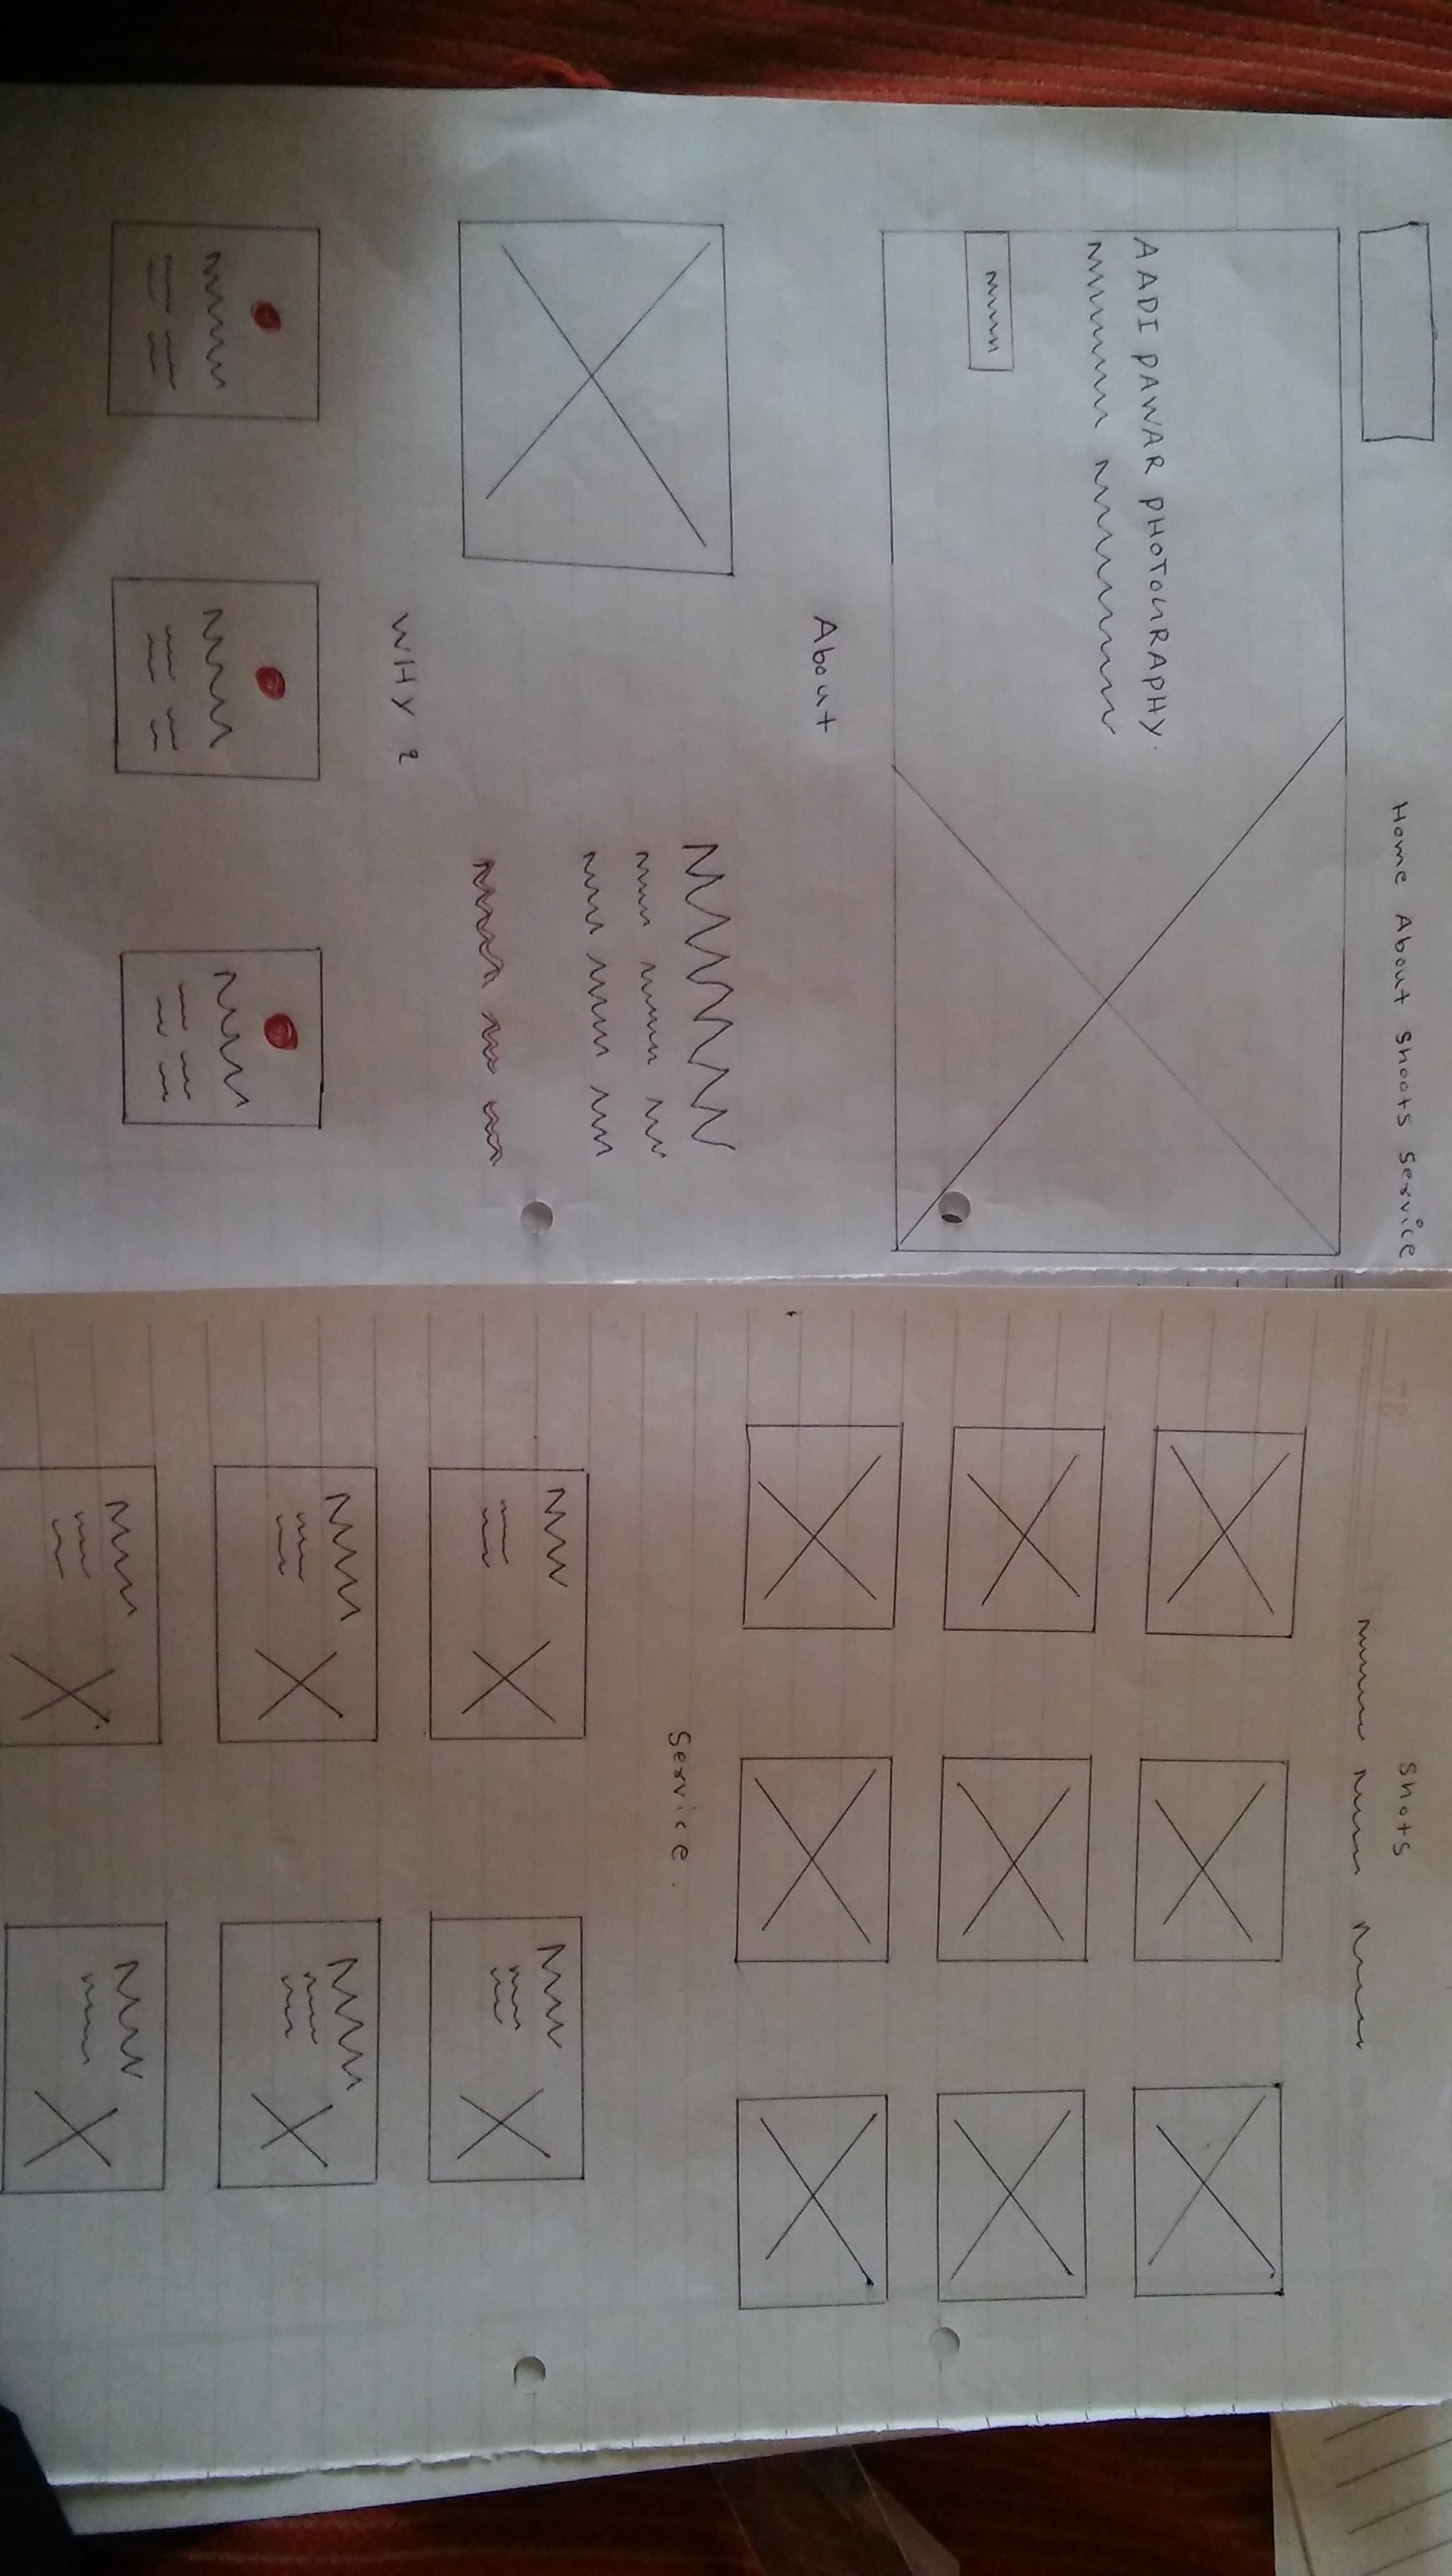 Home About Shoots Service
AADI PAWAR PHOTOGRAPHY.
About
WHY ?
Shots
Service.